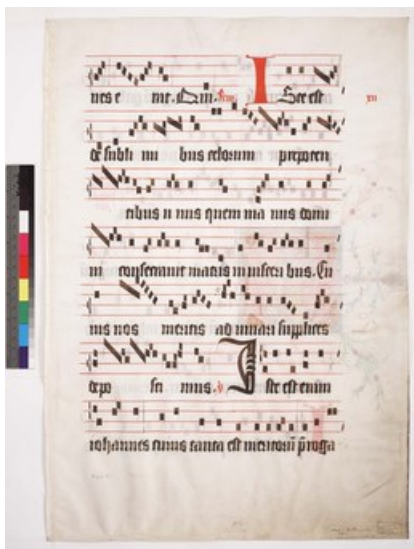 nes e me. Qui. Iste est
de subli mi bus celorum prepoten
tibus u nus quem ma nus domi
ni consecravit matris in visceri bus. Cu
ius nos meritis ad iuvari supplices
depo sci mus. v Iste est enim
iohannes cuius tanta est meritorum proga